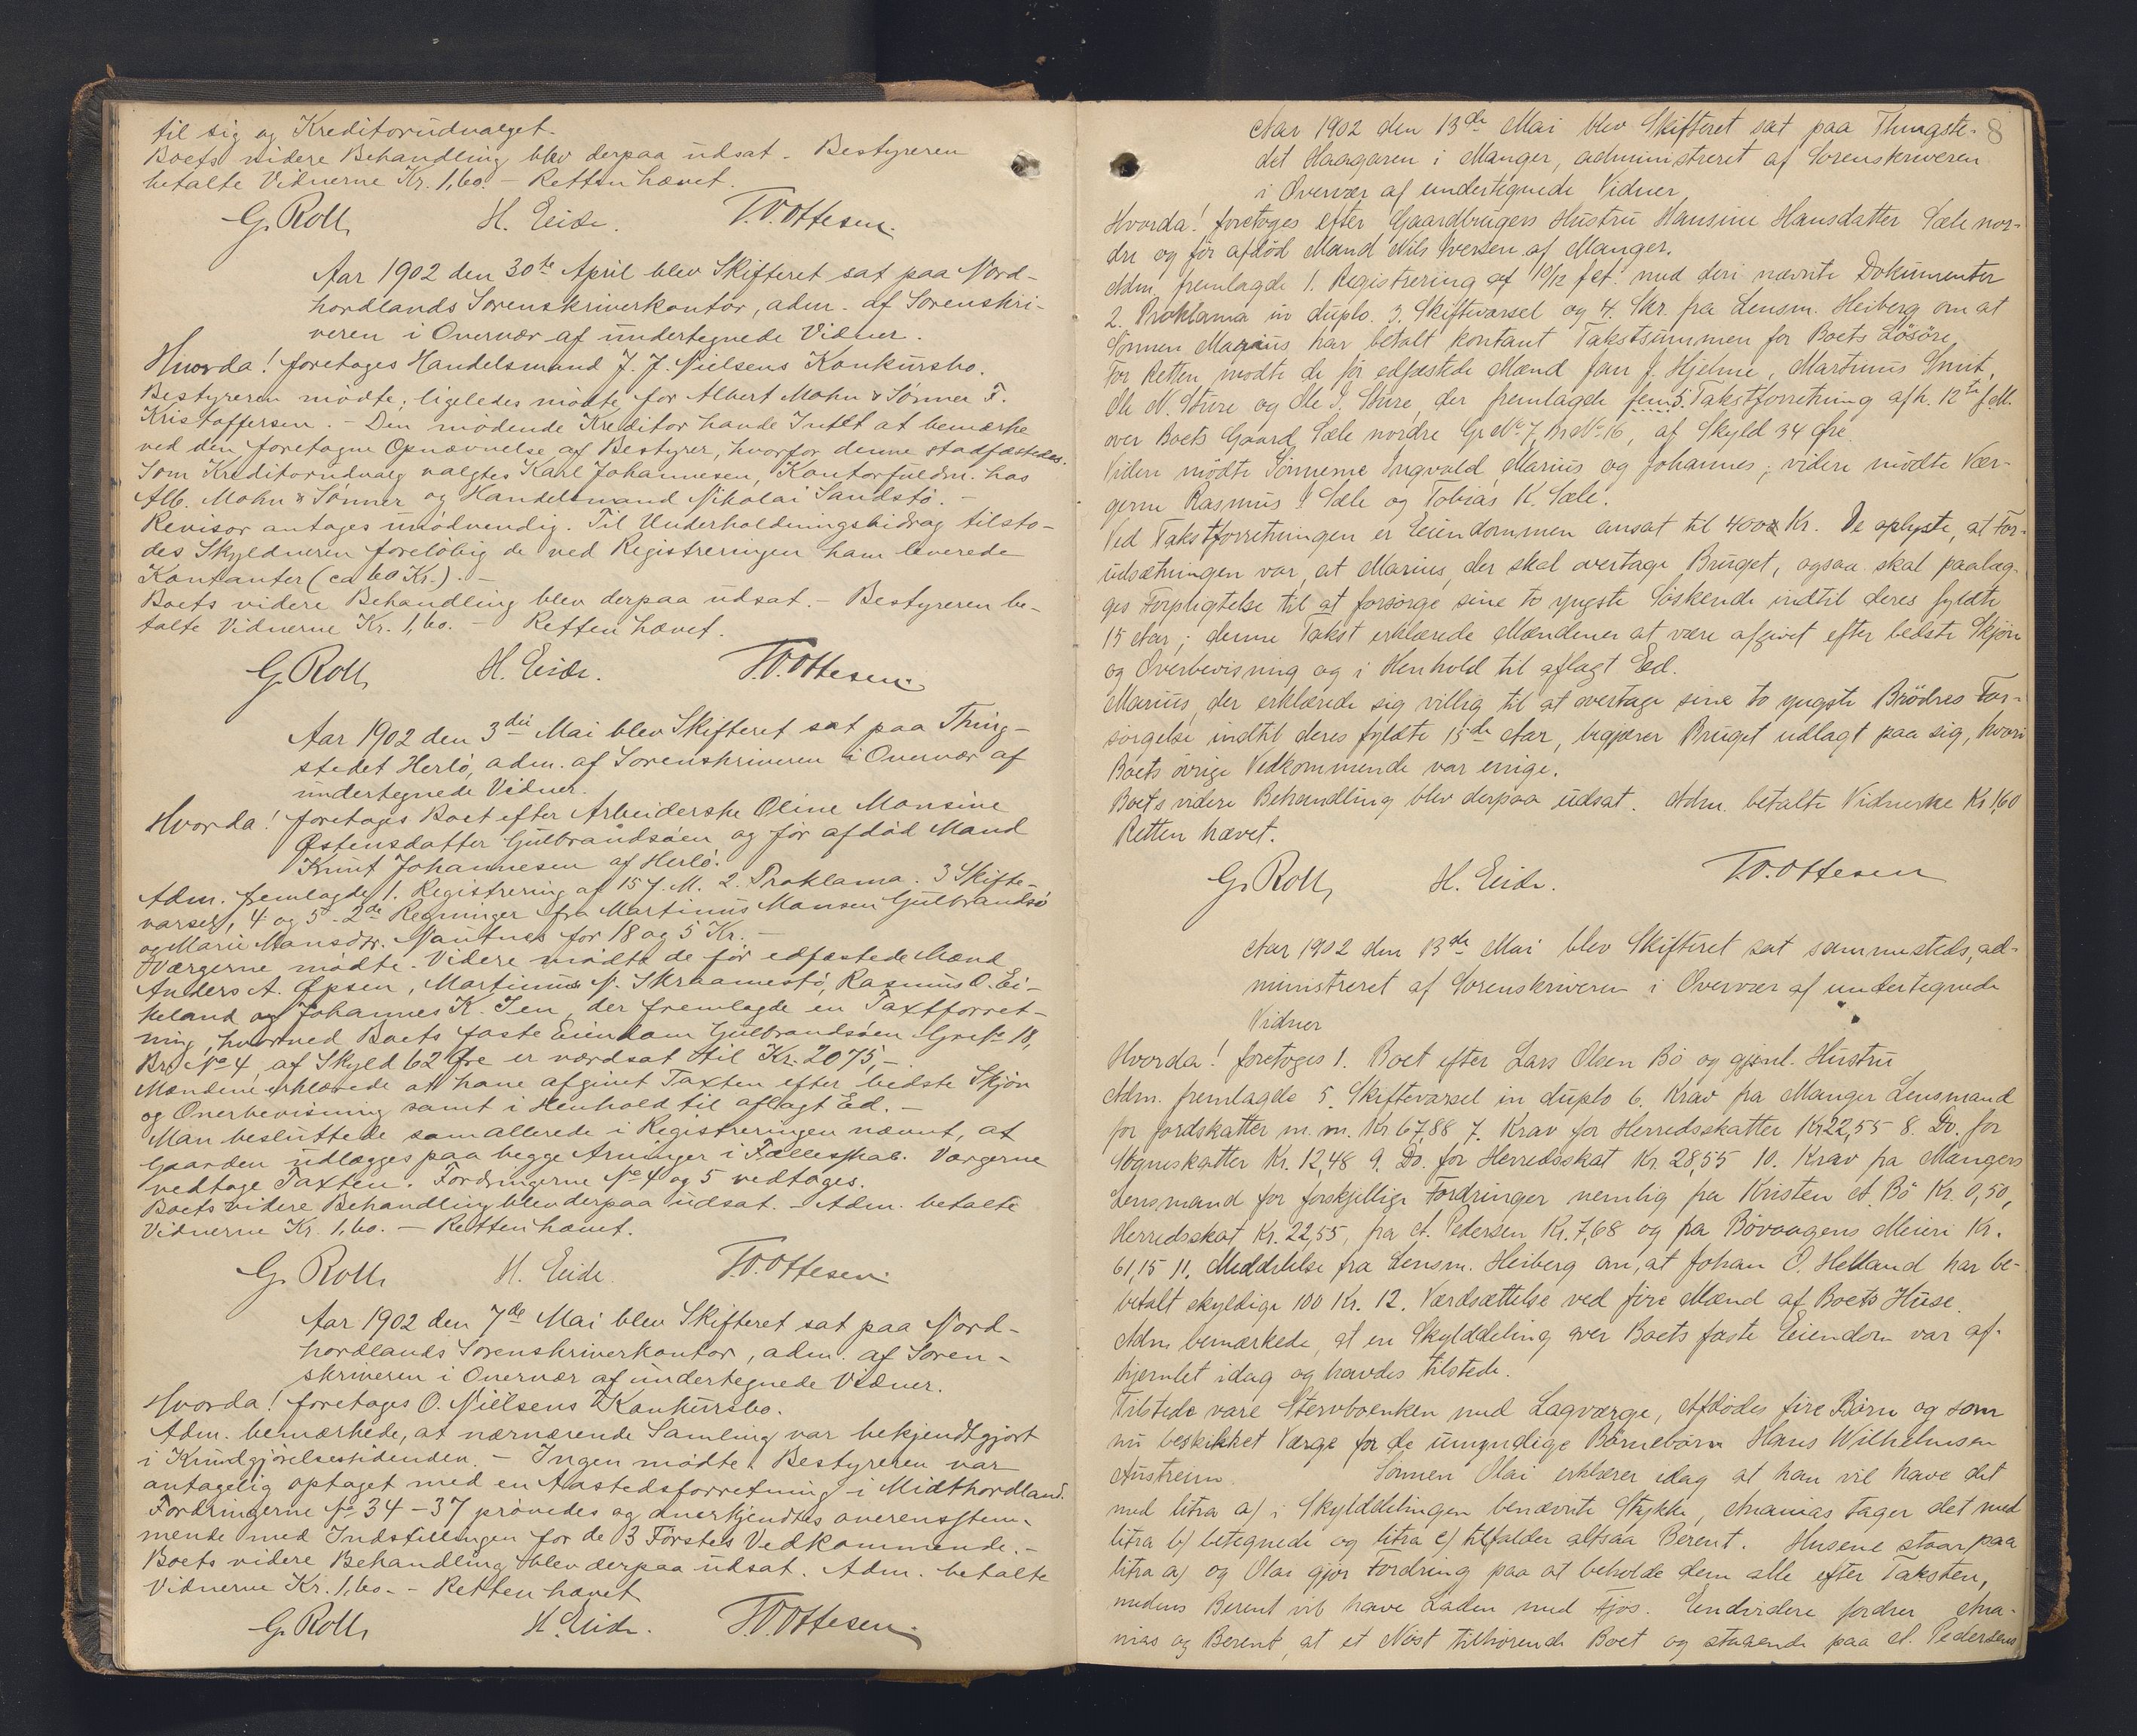 til sig og Kreditorudvalget.
Boets videre Behandling blev derpaa udsat. Bestyreren
betalte Vidnerne Kr. 1,60. - Retten hævet.
G. Roll H. Eide. T.O. Ottesen.
Aar 1902 den 30te April blev Skifteret sat paa Nord-
hordlands Sorenskriverkontor, adm. af Sorenskri-
veren i Overvær af undertegnede Vidner.
Hvorda! foretoges Handelsmand J. J. Nielsens Konkursbo.
Bestyreren mødte; ligeledes mødte for Albert Mohn & Sønner F.
Kristoffersen. - Den mødende Kreditor havde Intet at bemærke
ved den foretagne Opnævnelse af Bestyrer, hvorfor denne stadfæstedes.
Som Kreditorudvalg valgtes Karl Johannesen, Kontorfuldm. hos
Alb. Mohn & Sønner og Handelsmand Nikolai Sandstø. -
Revisor antages unødvendig. Til Underholdningsbidrag tilsto-
des Skyldneren foreløbig de ved Registreringen ham leverede
Kontanter (ca 60 Kr.). -
Boets videre Behandling blev derpaa udsat. - Bestyreren be-
talte Vidnerne Kr. 1,60. - Retten hævet.
G. Roll H. Eide. T.O. Ottesen.
Aar 1902 den 3die Mai blev Skifteret sat paa Thing-
stedet Herlø, adm. af Sorenskriveren i Overvær af
undertegnede Vidner.
Hvorda! foretoges Boet efter Arbeiderske Oline Monsine
Østensdatter Gulbrandsøen og før afdød Mand
Knut Johannesen af Herlø.
Adm. fremlagde 1. Registrering af 15 f. M. 2. Proklama. 3 Skifte-
varsel, 4 og 5 - 2de Regninger fra Martinus Monsen Gulbrandsø
og Marie Monsdtr. Nautnes for 18 og 5 Kr. -
Værgerne mødte. Videre mødte de før edfæstede Mænd
Anders A. Øpsen, Martinus N. Skraamestø, Rasmus O. Ei-
keland og Johannes K. Ien, der fremlagde en Taxtforret-
ning, hvorved Boets faste Eiendom Gulbrandsøen Gr No 18,
Br. No 4, af Skyld 62 Øre er værdsat til Kr. 2075,-
Mændene erklærede at have afgivet Taxten efter bedste Skjøn
og Overbevisning samt i Henhold til aflagt Ed. -
Man besluttede som allerede i Registreringen nævnt, at
Gaarden udlægges paa begge Arvinger i Fællesskab. Værgerne
vedtoge Taxten. Fordringerne No 4 og 5 vedtoges.
Boets videre Behandling blev derpaa udsat. - Adm. betalte
Vidnerne Kr. 1,60. - Retten hævet.
G. Roll H. Eide. T.O. Ottesen.
Aar 1902 den 7de Mai blev Skifteret sat paa Nord-
hordlands Sorenskriverkontor, adm. af Soren-
skriveren i Overvær af undertegnede Vidner.
Hvorda! foretoges O. Nielsens Konkursbo.
Adm. bemærkede, at nærværende Samling var bekjendtgjort
i Kundgjørelsestidenden. - Ingen mødte. Bestyreren var
antagelig optaget med en Aastedsforretning i Midthordland.
Fordringerne No 34 - 37 prøvedes og anerkjendtes overensstem-
mende med Indstillingen for de 3 Førstes Vedkommende. -
Boets videre Behandling blev derpaa udsat. Adm. betalte
Vidnerne Kr. 1,60. - Retten hævet
G. Roll H. Eide. T.O. Ottesen.
8
Aar 1902 den 13de Mai blev Skifteret sat paa Thingste-
det Haagaren i Manger, administreret af Sorenskriveren
i Overvær af undertegnede Vidner
Hvorda! foretoges efter Gaardbrugers Hustru Hansine Hansdatter Sæle nor-
dre og før afdød Mand Nils Iversen af Manger.
Adm. fremlagde 1. Registrering af 10/12 f. A. med deri nævnte Dokumenter
2. Proklama in duplo. 3. Skiftevarsel og 4. Skr. fra Lensm. Heiberg om at
Sønnen Marius har betalt kontant Takstsummen for Boets Løsøre.
For Retten mødte de før edfæstede Mænd Jan J. Hjelme, Martinus Gniit,
Ole N. Sture og Ole I. Sture, der fremlagde 5. Takstforretning afh. 12te f. M.
over Boets Gaard Sæle nordre Gr No 7, Br No 16, af Skyld 34 Øre.
Videre mødte Sønnerne Ingvald, Marius og Johannes; videre mødte Vær-
gerne Rasmus I. Sæle og Tobias K. Sæle.
Ved Takstforretningen er Eiendommen ansat til 400 Kr. De oplyste, at For-
udsætningen var, at Marius, der skal overtage Bruget, ogsaa skal paalæg-
ges Forpligtelse til at forsørge sine to yngste Søskende indtil deres fyldte
15 Aar; denne Takst erklærede Mændene at være afgivet efter bedste Skjøn
og Overbevisning og i Henhold til aflagt Ed.
Marius, der erklærede sig villig til at overtage sine to yngste Brødres For-
sørgelse indtil deres fyldte 15de Aar, begjærer Bruget udlagt paa sig, hvori
Boets øvrige Vedkommende var enige.
Boets videre Behandling blev derpaa udsat. Adm. betalte Vidnerne Kr 1,60
Retten hævet.
G. Roll H. Eide. T.O. Ottesen
Aar 1902 den 13de Mai blev Skifteret sat sammesteds, ad-
ministreret af Sorenskriveren i Overvær af undertegnede
Vidner
Hvorda! foretoges 1. Boet efter Lars Olsen Bø og gjenl. Hustru
Adm. fremlagde 5. Skiftevarsel in duplo 6. Krav fra Manger Lensmand
for Jordskatter m. m. Kr 67,88 7. Krav for Herredsskatter Kr 22,55 8. Do. for
Sogneskatter Kr. 12,48 9. Do. for Herredsskat Kr. 28,55 10. Krav fra Mangers
Lensmand for forskjellige Fordringer nemlig fra Kristen A. Bø Kr. 0,50,
Herredsskat Kr. 22,55, fra A. Pedersen Kr. 7,68 og fra Bøvaagens Meieri Kr.
61,15 11. Meddelelse fra Lensm. Heiberg om, at Johan O. Helland har be-
betalt skyldige 100 Kr. 12. Værdsættelse ved fire Mænd af Boets Huse.
Adm bemærkede, at en Skylddeling over Boets faste Eiendom var af-
hjemlet idag og havdes tilstede.
Tilstede vare Stervboenken med Lagværge, Afdødes fire Børn og som
nu beskikket Værge for de umyndige Børnebørn Hans Wilhelmsen
Austreim. Sønnen Olai erklærer idag at han vil have det
med litra a) i Skylddelingen benævnte Stykke, Ananias tager det med
litra b) betegnede og litra c) tilfalder altsaa Berent. Husene staar paa
litra a) og Olai gjør Fordring paa at beholde dem alle efter Taksten,
medens Berent vil have Laden med Fjøs. Endvidere fordrer Ana-
nias og Berent, at et Nøst tilhørende Boet og staaende paa A. Pedersens